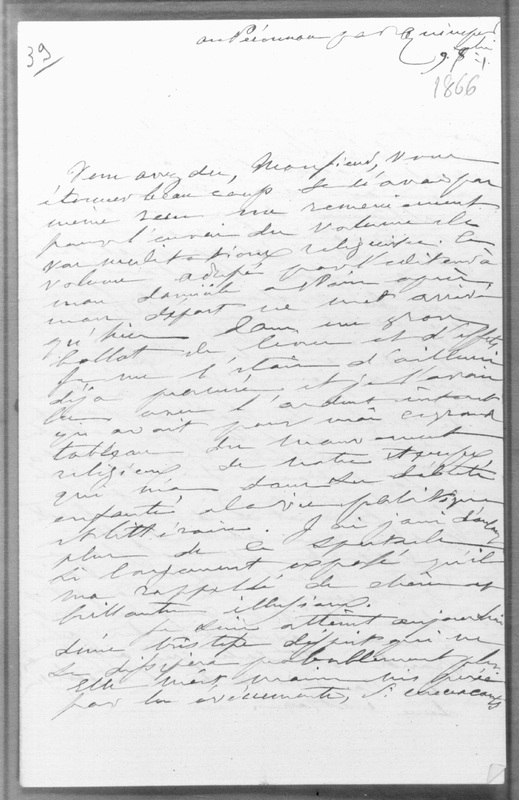 39
au Pérennou par Quimper
9 8
1866
Vous avez du, Monsieur, vous
étonner beaucoup de n'avoir pas
même reçu un remerciement
pour l'envoi du volume de
vos méditations religieuses. Ce
volume adressé par l'éditeur à
mon domicile à Paris après
mon départ ne m'est arrivé
qu'hier dans une gros
ballot de livres et d'effets
je me l'étais d'ailleurs
déjà procuré et je l'avais
lu avec l'ardent intérêt
qu'avait pour moi ce grand
tableau du mouvement
religieux de notre époque
qui m'a dans son début
enfanté à la vie politique
et littéraire. J'ai joui d'autant
plus de ce spectacle
si largement exposé qu'il
m'a rappelé de chères et
brillantes illusions.
Je suis atteint aujourd'hui
d'une tristesse qui ne
se dissipera probablement plus
Elle m'est moins inspirée
par les événements,